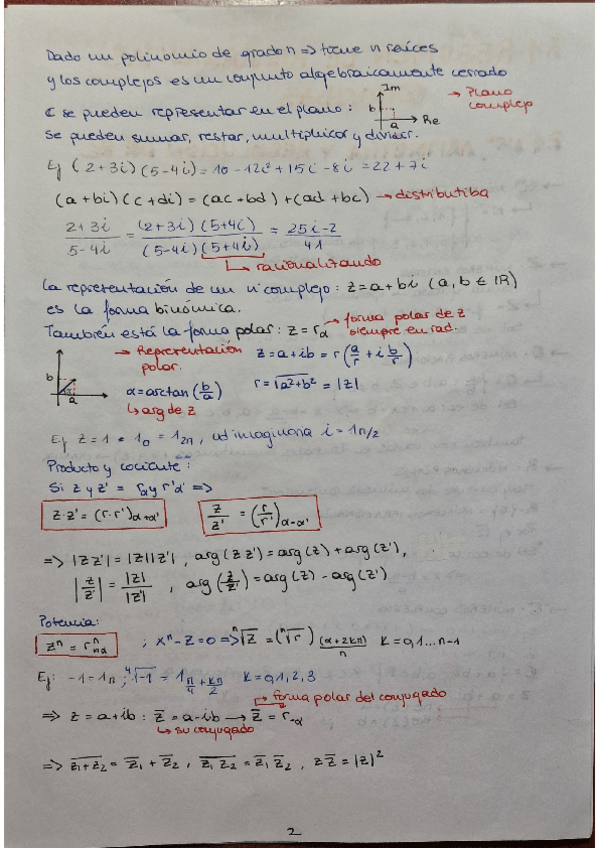 Dado un polinomio de grado n => tiene n raíces
y los complejos es un conjunto algebraicamente cerrado
ℂ se pueden representar en el plano: Im b a Re → Plano complejo
Se pueden sumar, restar, multiplicar y dividir.
Ej (2+3i)(5-4i) = 10-12i²+15i-8i = 22+7i
(a+bi)(c+di) = (ac-bd)+(ad+bc) → distributiba
(2+3i)/(5-4i) = (2+3i)(5+4i)/(5-4i)(5+4i) = (25i-2)/41
↳ racionalizando
La representación de un nº complejo: z = a+bi (a,b ∈ ℝ)
es la forma binómica.
También está la forma polar: z = r_α → forma polar de z siempre en rad.
b a → Representación polar.
z = a+ib = r(a/r + i b/r)
α = arctan(b/a) r = √(a²+b²) = |z|
↳ arg de z
Ej z = 1 = 1_0 = 1_2π, ud imaginaria i = 1_π/2
Producto y cociente:
Si z y z' = r_α y r'_α' =>
z·z' = (r·r')_α+α' z/z' = (r/r')_α-α'
=> |zz'| = |z||z'|, arg(zz') = arg(z)+arg(z'),
|z/z'| = |z|/|z'|, arg(z/z') = arg(z) - arg(z')
Potencia:
zⁿ = rⁿ_nα ; xⁿ-z=0 => ⁿ√z = (ⁿ√r)_(α+2kπ)/n k=0,1...n-1
Ej: -1 = 1_π ; ⁴√-1 = 1_π/4+kπ/2 k=0,1,2,3
→ forma polar del conjugado
=> z = a+ib : z̄ = a-ib → z̄ = r_-α
↳ su conjugado
=> z̅₁̅+̅z̅₂̅ = z̄₁ + z̄₂, z̅₁̅z̅₂̅ = z̄₁z̄₂, zz̄ = |z|²
2